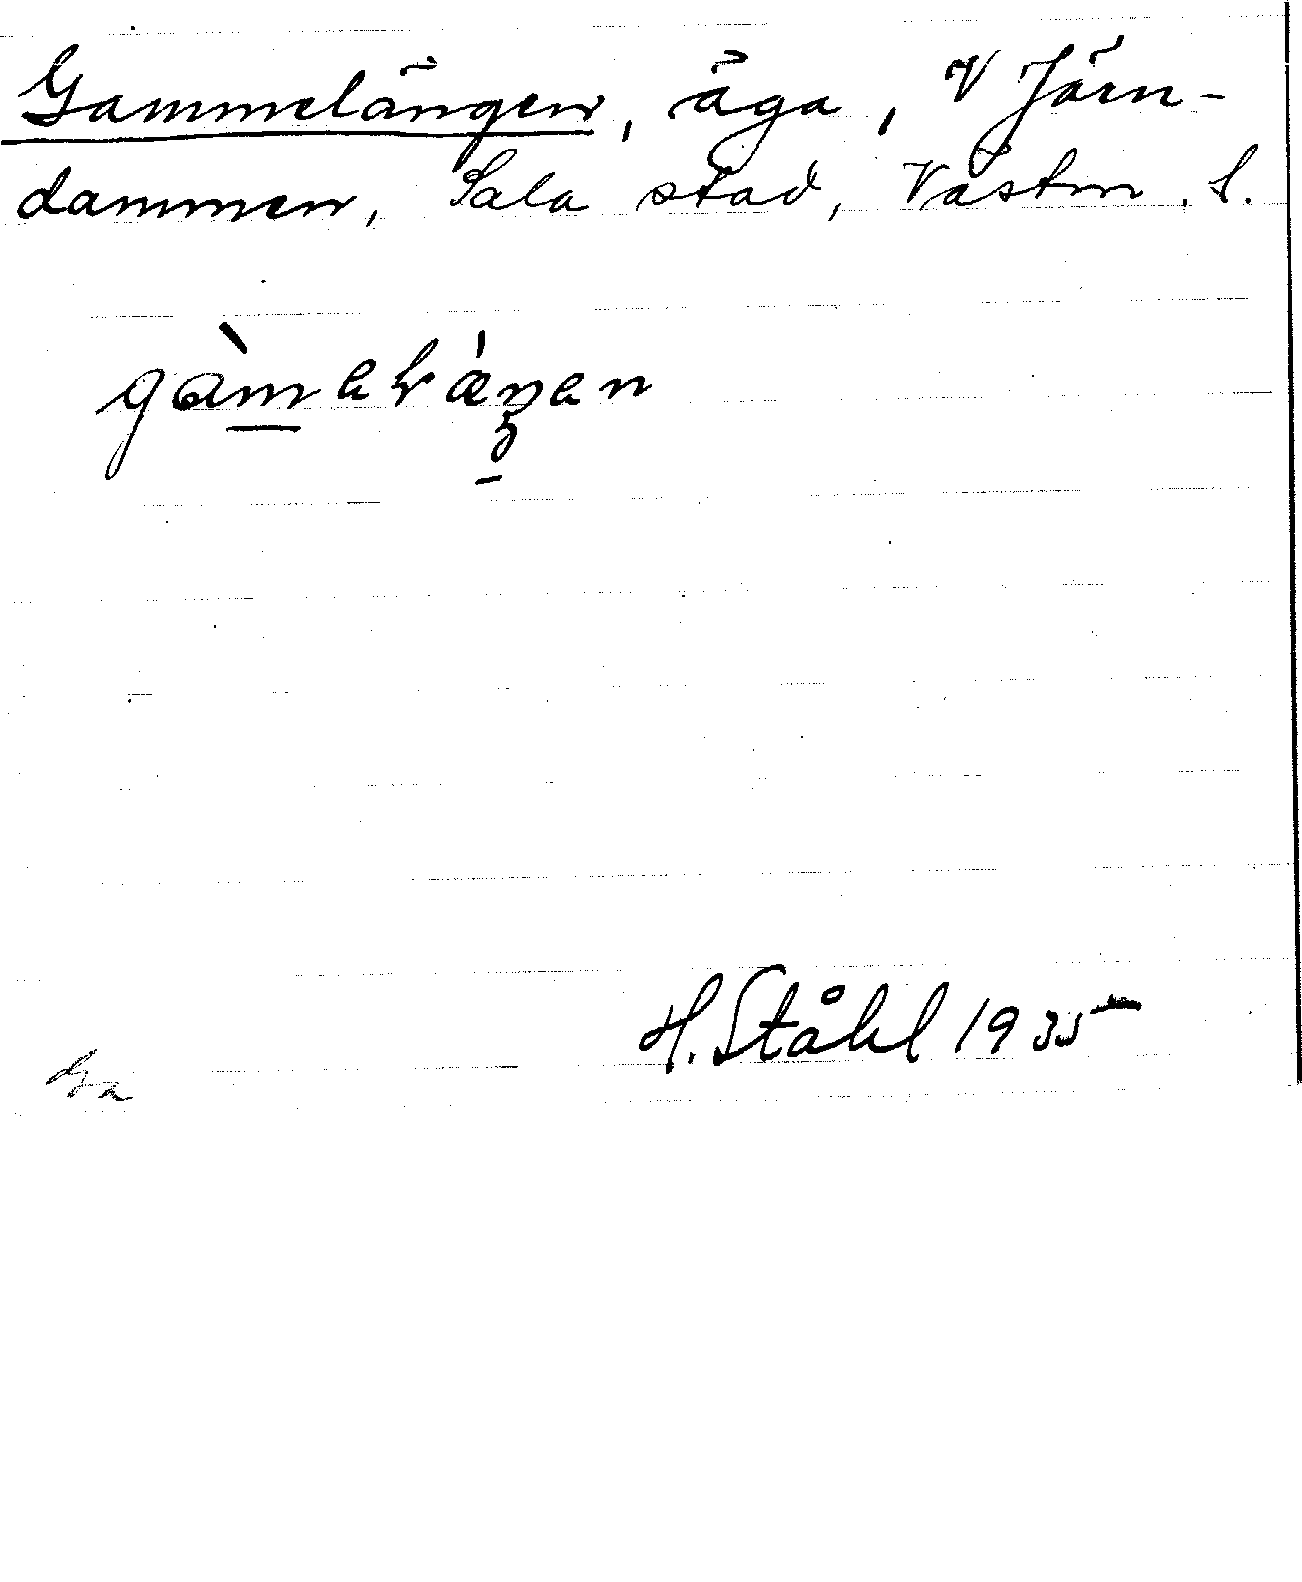 Gammelängen, äga, V Järn-
dammen, Sala stad, Västm. l.
H. Ståhl 1935
Ga